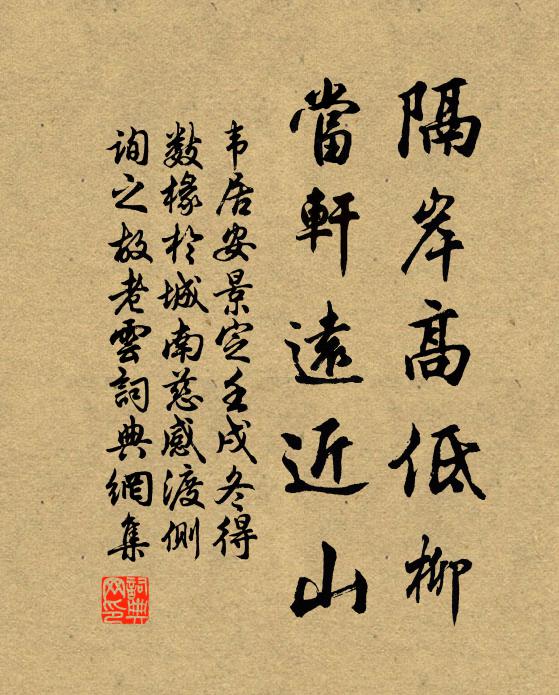 隔岸高低柳
當軒遠近山
韦居安景定壬戌冬得
数椽於城南慈感渡側
詢之故老雲詞典網集
詞典
网印